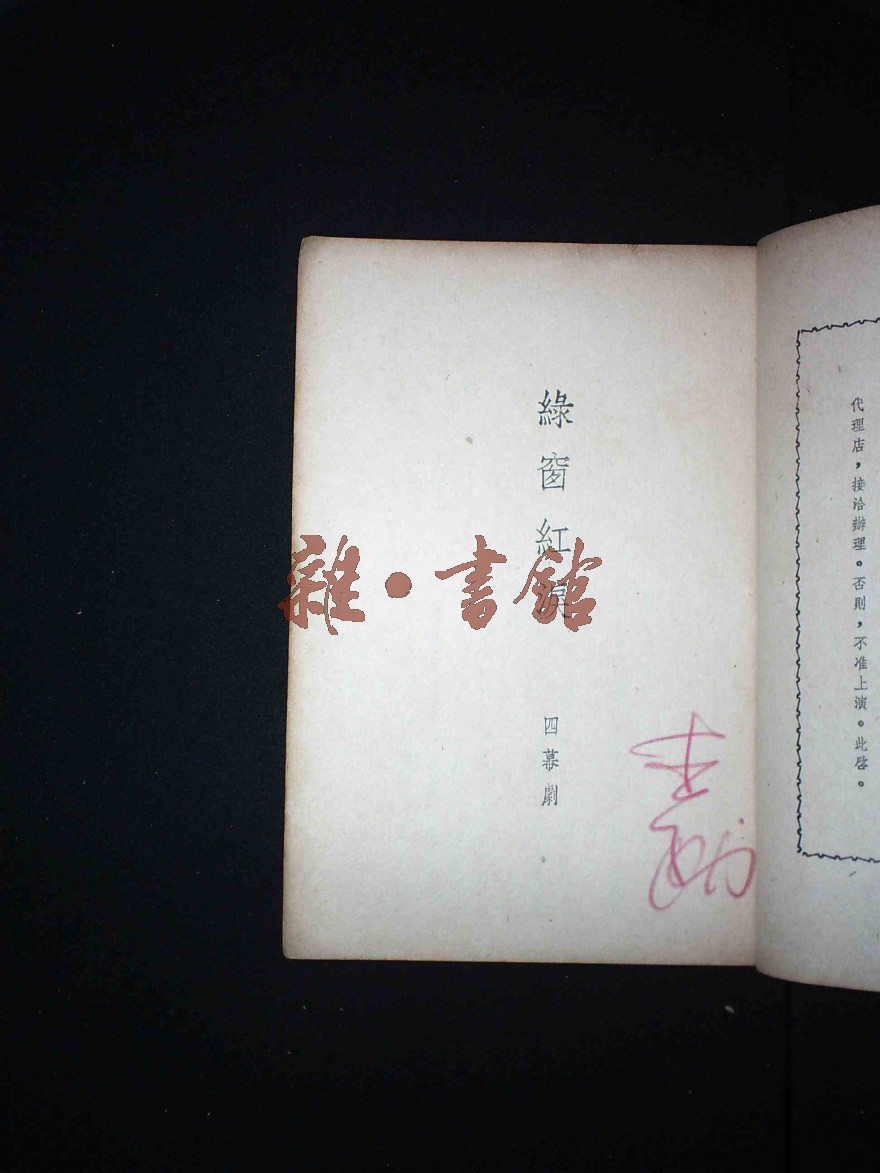 代理店，接洽辦理。否則，不准上演。此啓。
綠窗紅淚
四幕劇
雜·書館